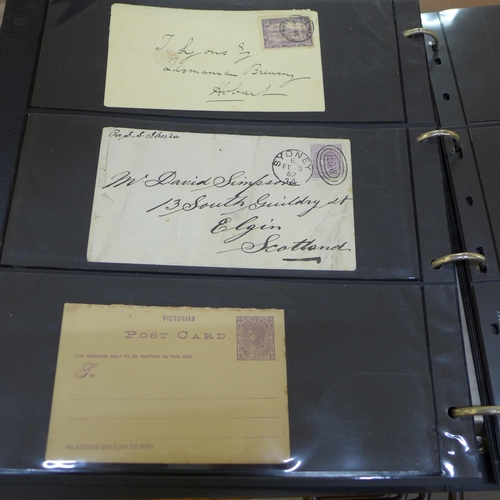 T. Lyons Esq
Tasmanian Brewery
Hobart
Per S.S.
SYDNEY
E
FE 5
87
Mr David Simpson
13 South Guildry st
Elgin
Scotland
VICTORIAN
POST CARD.
THE ADDRESS ONLY TO BE WRITTEN ON THIS SIDE
To
THE ATTACHED CARD IS FOR THE REPLY.